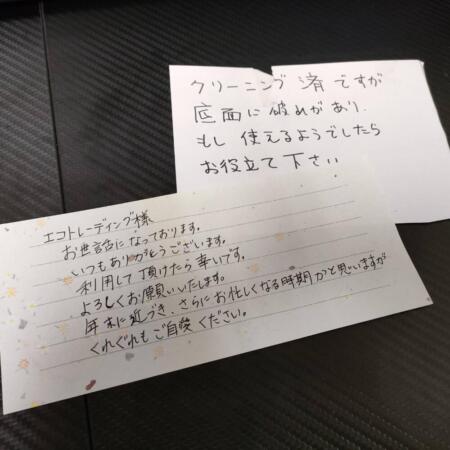 クリーニング済ですが
底面に破れがあり、
もし使えるようでしたら
お役立て下さい
エコトレーディング様
お世話になっております。
いつもありがとうございます。
利用して頂けたら幸いです。
よろしくお願いいたします。
年末に近づき、さらにお忙しくなる時期かと思いますが
くれぐれもご自愛ください。